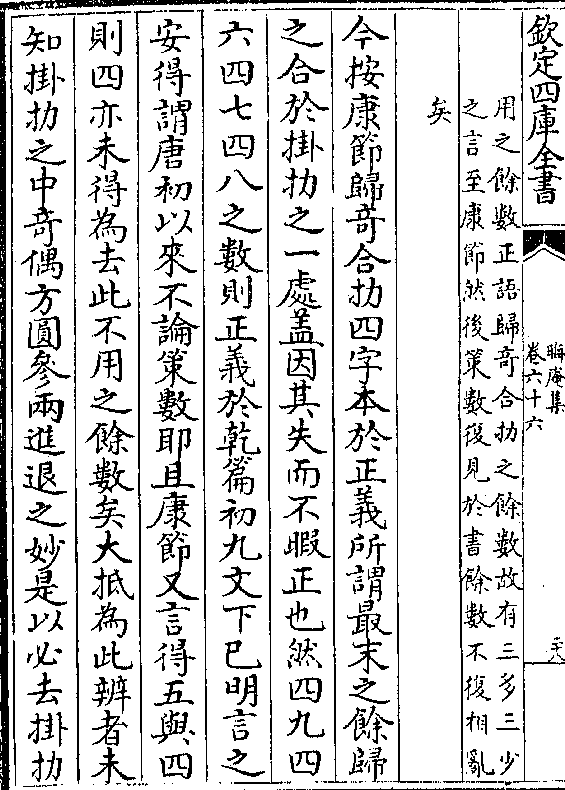 欽定四庫全書
晦庵集
卷六十六
二十八
用之餘數正語歸奇合扐之餘數故有三多三少
之言至康節然後策數復見於書餘數不復相亂
矣
今按康節歸奇合扐四字本於正義所謂最末之餘歸
之合於掛扐之一處盖因其失而不暇正也然四九四
六四七四八之數則正義於乾篇初九文下已明言之
安得謂唐初以來不論策數耶且康節又言得五與四
則四亦未得為去此不用之餘數矣大抵為此辨者未
知掛扐之中奇偶方圓參兩進退之妙是以必去掛扐